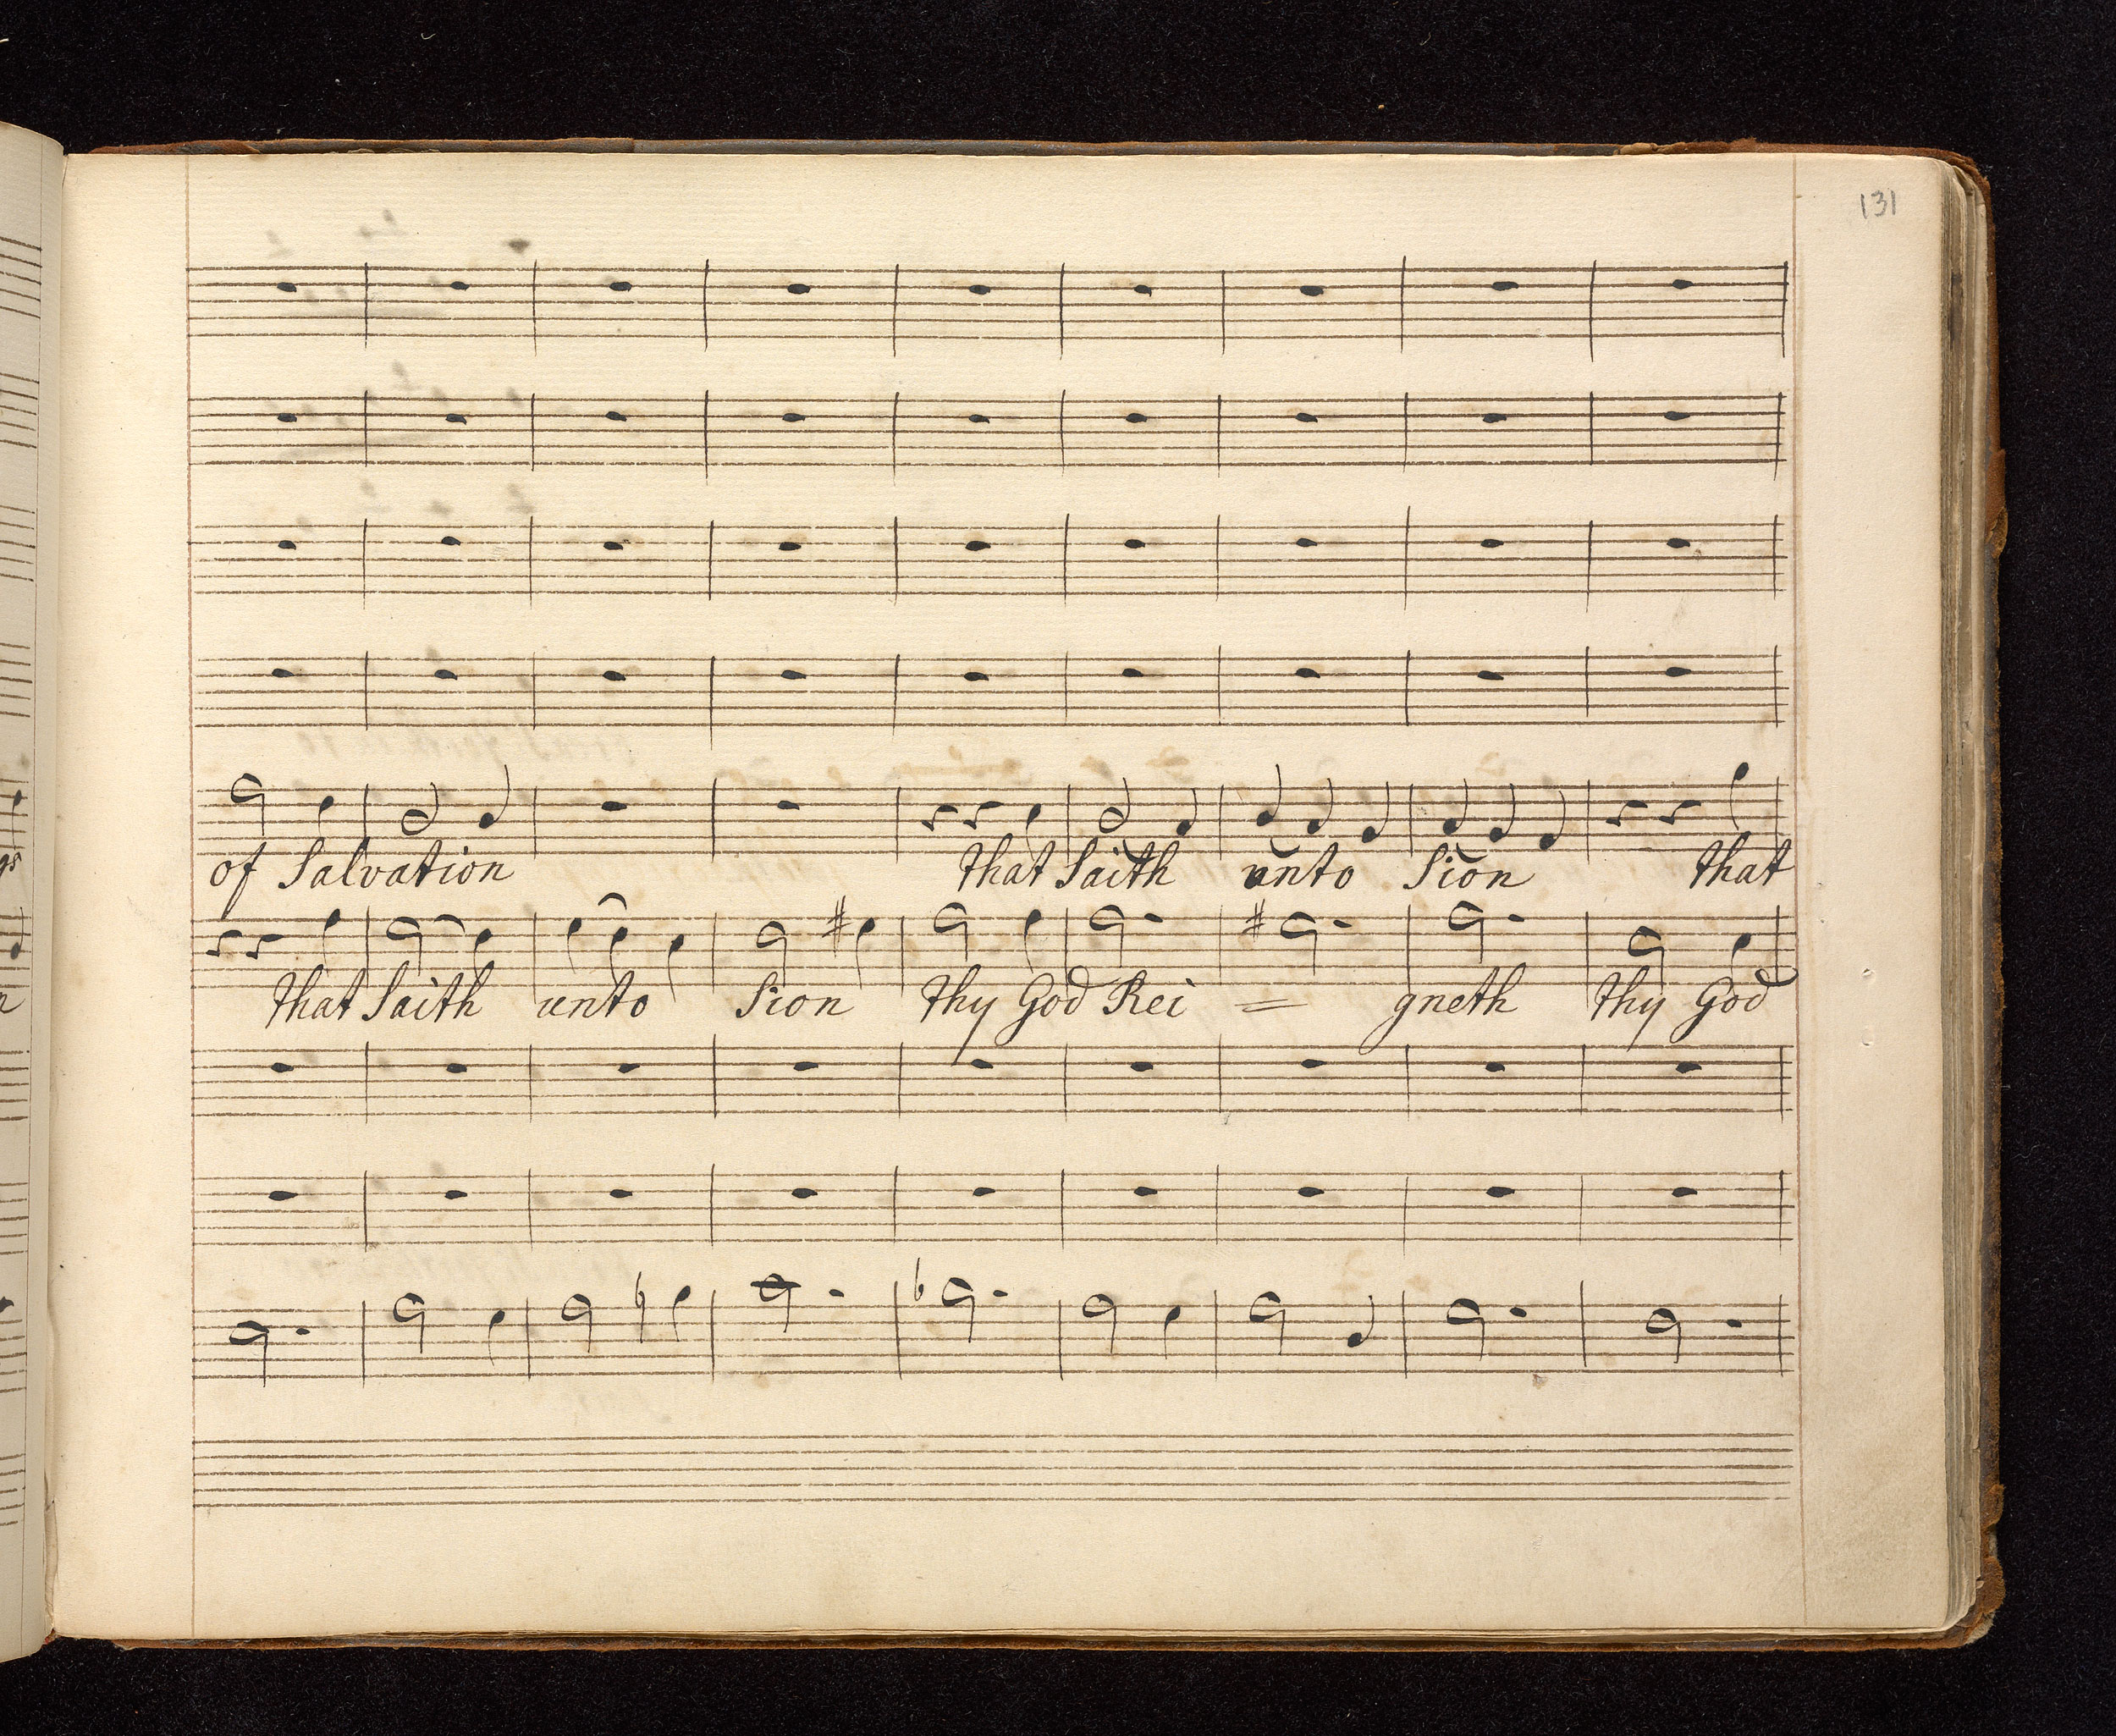 131
of Salvation that Saith unto Sion that
that Saith unto Sion thy God Rei = gneth thy God